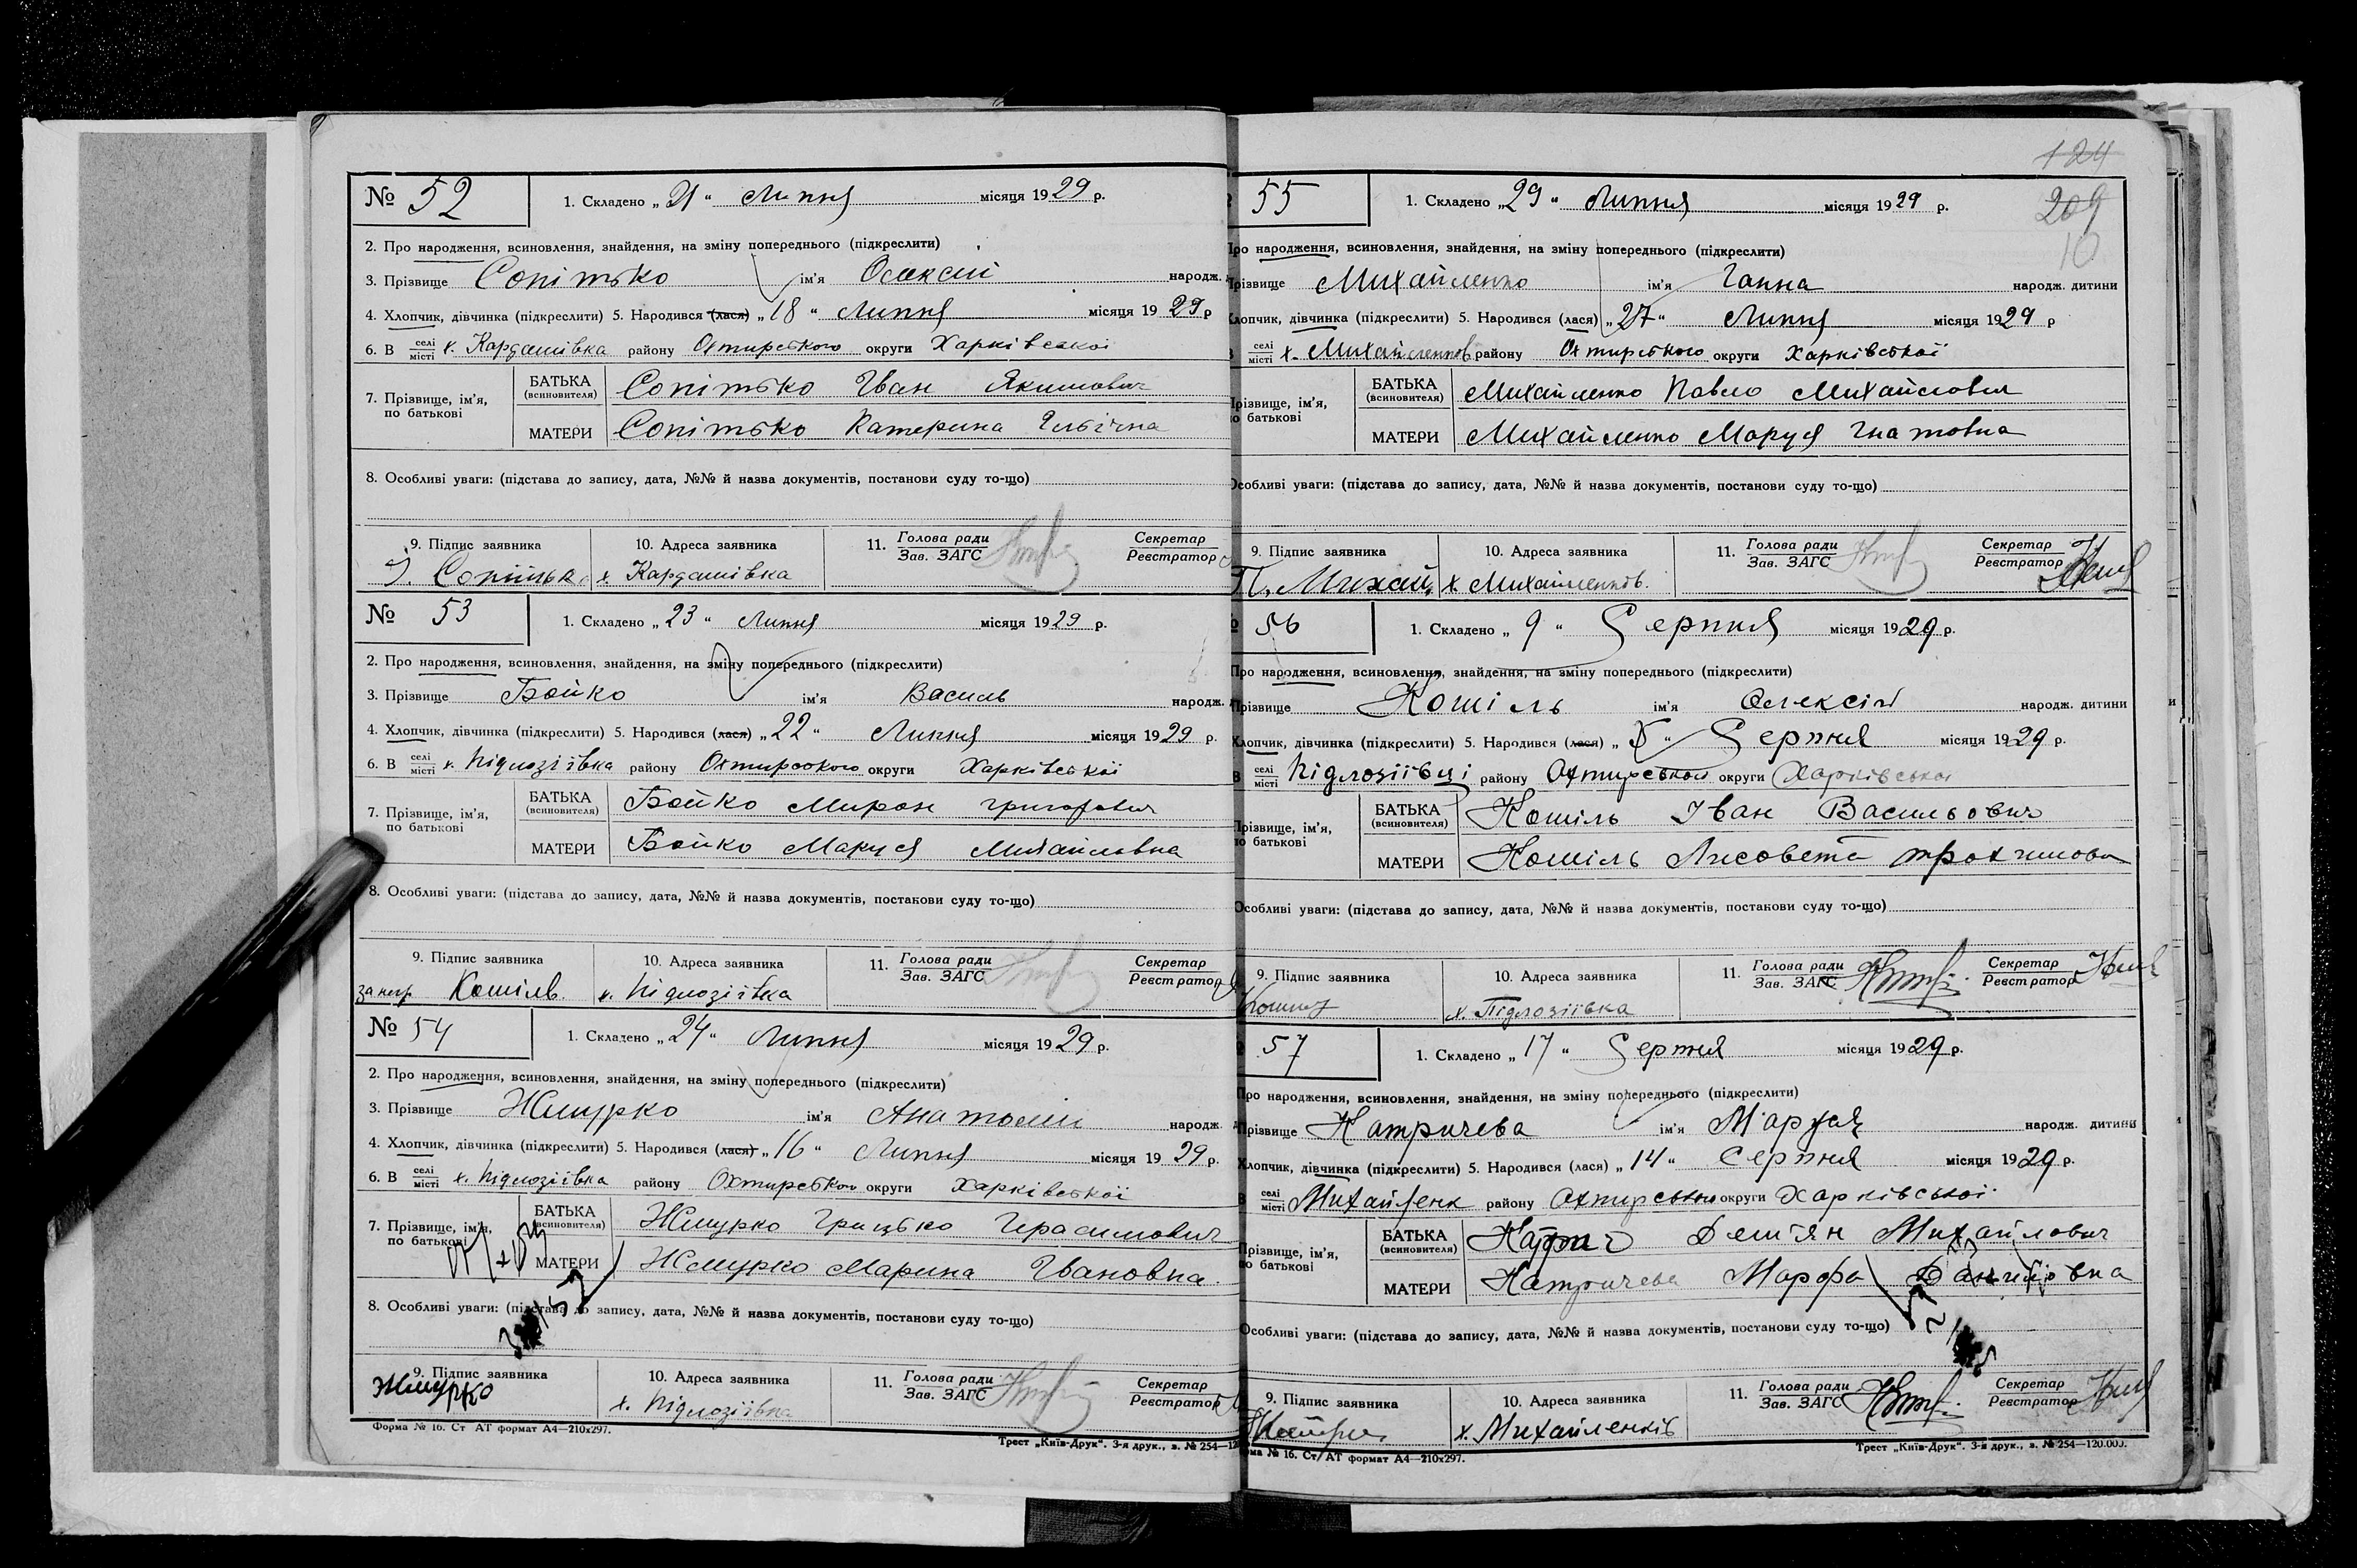 № 52 1. Складено „ 21 “ Липня місяця 1929 р.
2. Про народження, всиновлення, знайдення, на зміну попереднього (підкреслити)
3. Прізвище Сопітько ім'я Олексій народж.
4. Хлопчик, дівчинка (підкреслити) 5. Народився (лася) „ 18 “ Липня місяця 1929 р
6. В селі місті х. Кардашівка району Охтирського округи Харківської
7. Прізвище, ім'я, по батькові БАТЬКА (всиновителя) Сопітько Іван Якимович
МАТЕРИ Сопітько Катерина Іллівна
8. Особливі уваги: (підстава до запису, дата, №№ й назва документів, постанови суду то-що)
9. Підпис заявника 10. Адреса заявника 11. Голова ради Зав. ЗАГС Секретар Реєстратор
х. Кардашівка
№ 53 1. Складено „ 23 “ Липня місяця 1929 р.
2. Про народження, всиновлення, знайдення, на зміну попереднього (підкреслити)
3. Прізвище Бойко ім'я Василь народж.
4. Хлопчик, дівчинка (підкреслити) 5. Народився (лася) „ 22 “ Липня місяця 1929 р.
6. В селі місті х. Підлозіївка району Охтирського округи Харківської
7. Прізвище, ім'я, по батькові БАТЬКА (всиновителя) Бойко Мирон Григорович
МАТЕРИ Бойко Маруся Михайловна
8. Особливі уваги: (підстава до запису, дата, №№ й назва документів, постанови суду то-що)
9. Підпис заявника 10. Адреса заявника 11. Голова ради Зав. ЗАГС Секретар Реєстратор
за негр Кошіль. х. Підлозіївка
№ 54 1. Складено „ 24 “ Липня місяця 1929 р.
2. Про народження, всиновлення, знайдення, на зміну попереднього (підкреслити)
3. Прізвище Жмурко ім'я Анатолій народж.
4. Хлопчик, дівчинка (підкреслити) 5. Народився (лася) „ 16 “ Липня місяця 1929 р.
6. В селі місті х. Підлозіївка району Охтирського округи Харківської
7. Прізвище, ім'я, по батькові БАТЬКА (всиновителя) Жмурко Грицько Герасимович
МАТЕРИ Жмурко Марина Івановна.
8. Особливі уваги: (підстава до запису, дата, №№ й назва документів, постанови суду то-що)
9. Підпис заявника 10. Адреса заявника 11. Голова ради Зав. ЗАГС Секретар Реєстратор
Жмурко х. Підлозіївка
Форма № 16. Ст АТ формат А4—210х297.
Трест „Київ-Друк“. 3-я друк., з. № 254—12
124
209
10
55 1. Складено „ 29 “ Липня місяця 1929 р.
Про народження, всиновлення, знайдення, на зміну попереднього (підкреслити)
Прізвище Михайленко ім'я Ганна народж. дитини
Хлопчик, дівчинка (підкреслити) 5. Народився (лася) „ 27 “ Липня місяця 1929 р
селі місті х. Михайленков району Охтирського округи Харківської
Прізвище, ім'я, по батькові БАТЬКА (всиновителя) Михайленко Павло Михайлович
МАТЕРИ Михайленко Маруся Гнатовна
Особливі уваги: (підстава до запису, дата, №№ й назва документів, постанови суду то-що)
9. Підпис заявника 10. Адреса заявника 11. Голова ради Зав. ЗАГС Секретар Реєстратор
П. Михай. х Михайленків.
56 1. Складено „ 9 “ Серпня місяця 1929 р.
Про народження, всиновлення, знайдення, на зміну попереднього (підкреслити)
Прізвище Кошіль ім'я Олексій народж. дитини
Хлопчик, дівчинка (підкреслити) 5. Народився (лася) „ “ Серпня місяця 1929 р.
В селі місті Підлозіївці району Охтирської округи Харківської
Прізвище, ім'я, по батькові БАТЬКА (всиновителя) Кошіль Іван Васильович
МАТЕРИ Кошіль Лисовета Трохимовн
Особливі уваги: (підстава до запису, дата, №№ й назва документів, постанови суду то-що)
9. Підпис заявника 10. Адреса заявника 11. Голова ради Зав. ЗАГС Секретар Реєстратор
х. Підлозіївка
57 1. Складено „ 17 “ Серпня місяця 1929 р.
Про народження, всиновлення, знайдення, на зміну попереднього (підкреслити)
Прізвище Катричева ім'я Маруся народж. дитини
Хлопчик, дівчинка (підкреслити) 5. Народився (лася) „ 14 “ Серпня місяця 1929 р.
В селі місті Михайленк району Охтирської округи Харківської
Прізвище, ім'я, по батькові БАТЬКА (всиновителя) Катрич Дем'ян Михайлович
МАТЕРИ Катричева Марфа Даниловна
Особливі уваги: (підстава до запису, дата, №№ й назва документів, постанови суду то-що)
9. Підпис заявника 10. Адреса заявника 11. Голова ради Зав. ЗАГС Секретар Реєстратор
х. Михайленків
ма № 16. Ст АТ формат А4—210х297.
Трест „Київ-Друк“. 3-я друк., з. № 254—120.000.